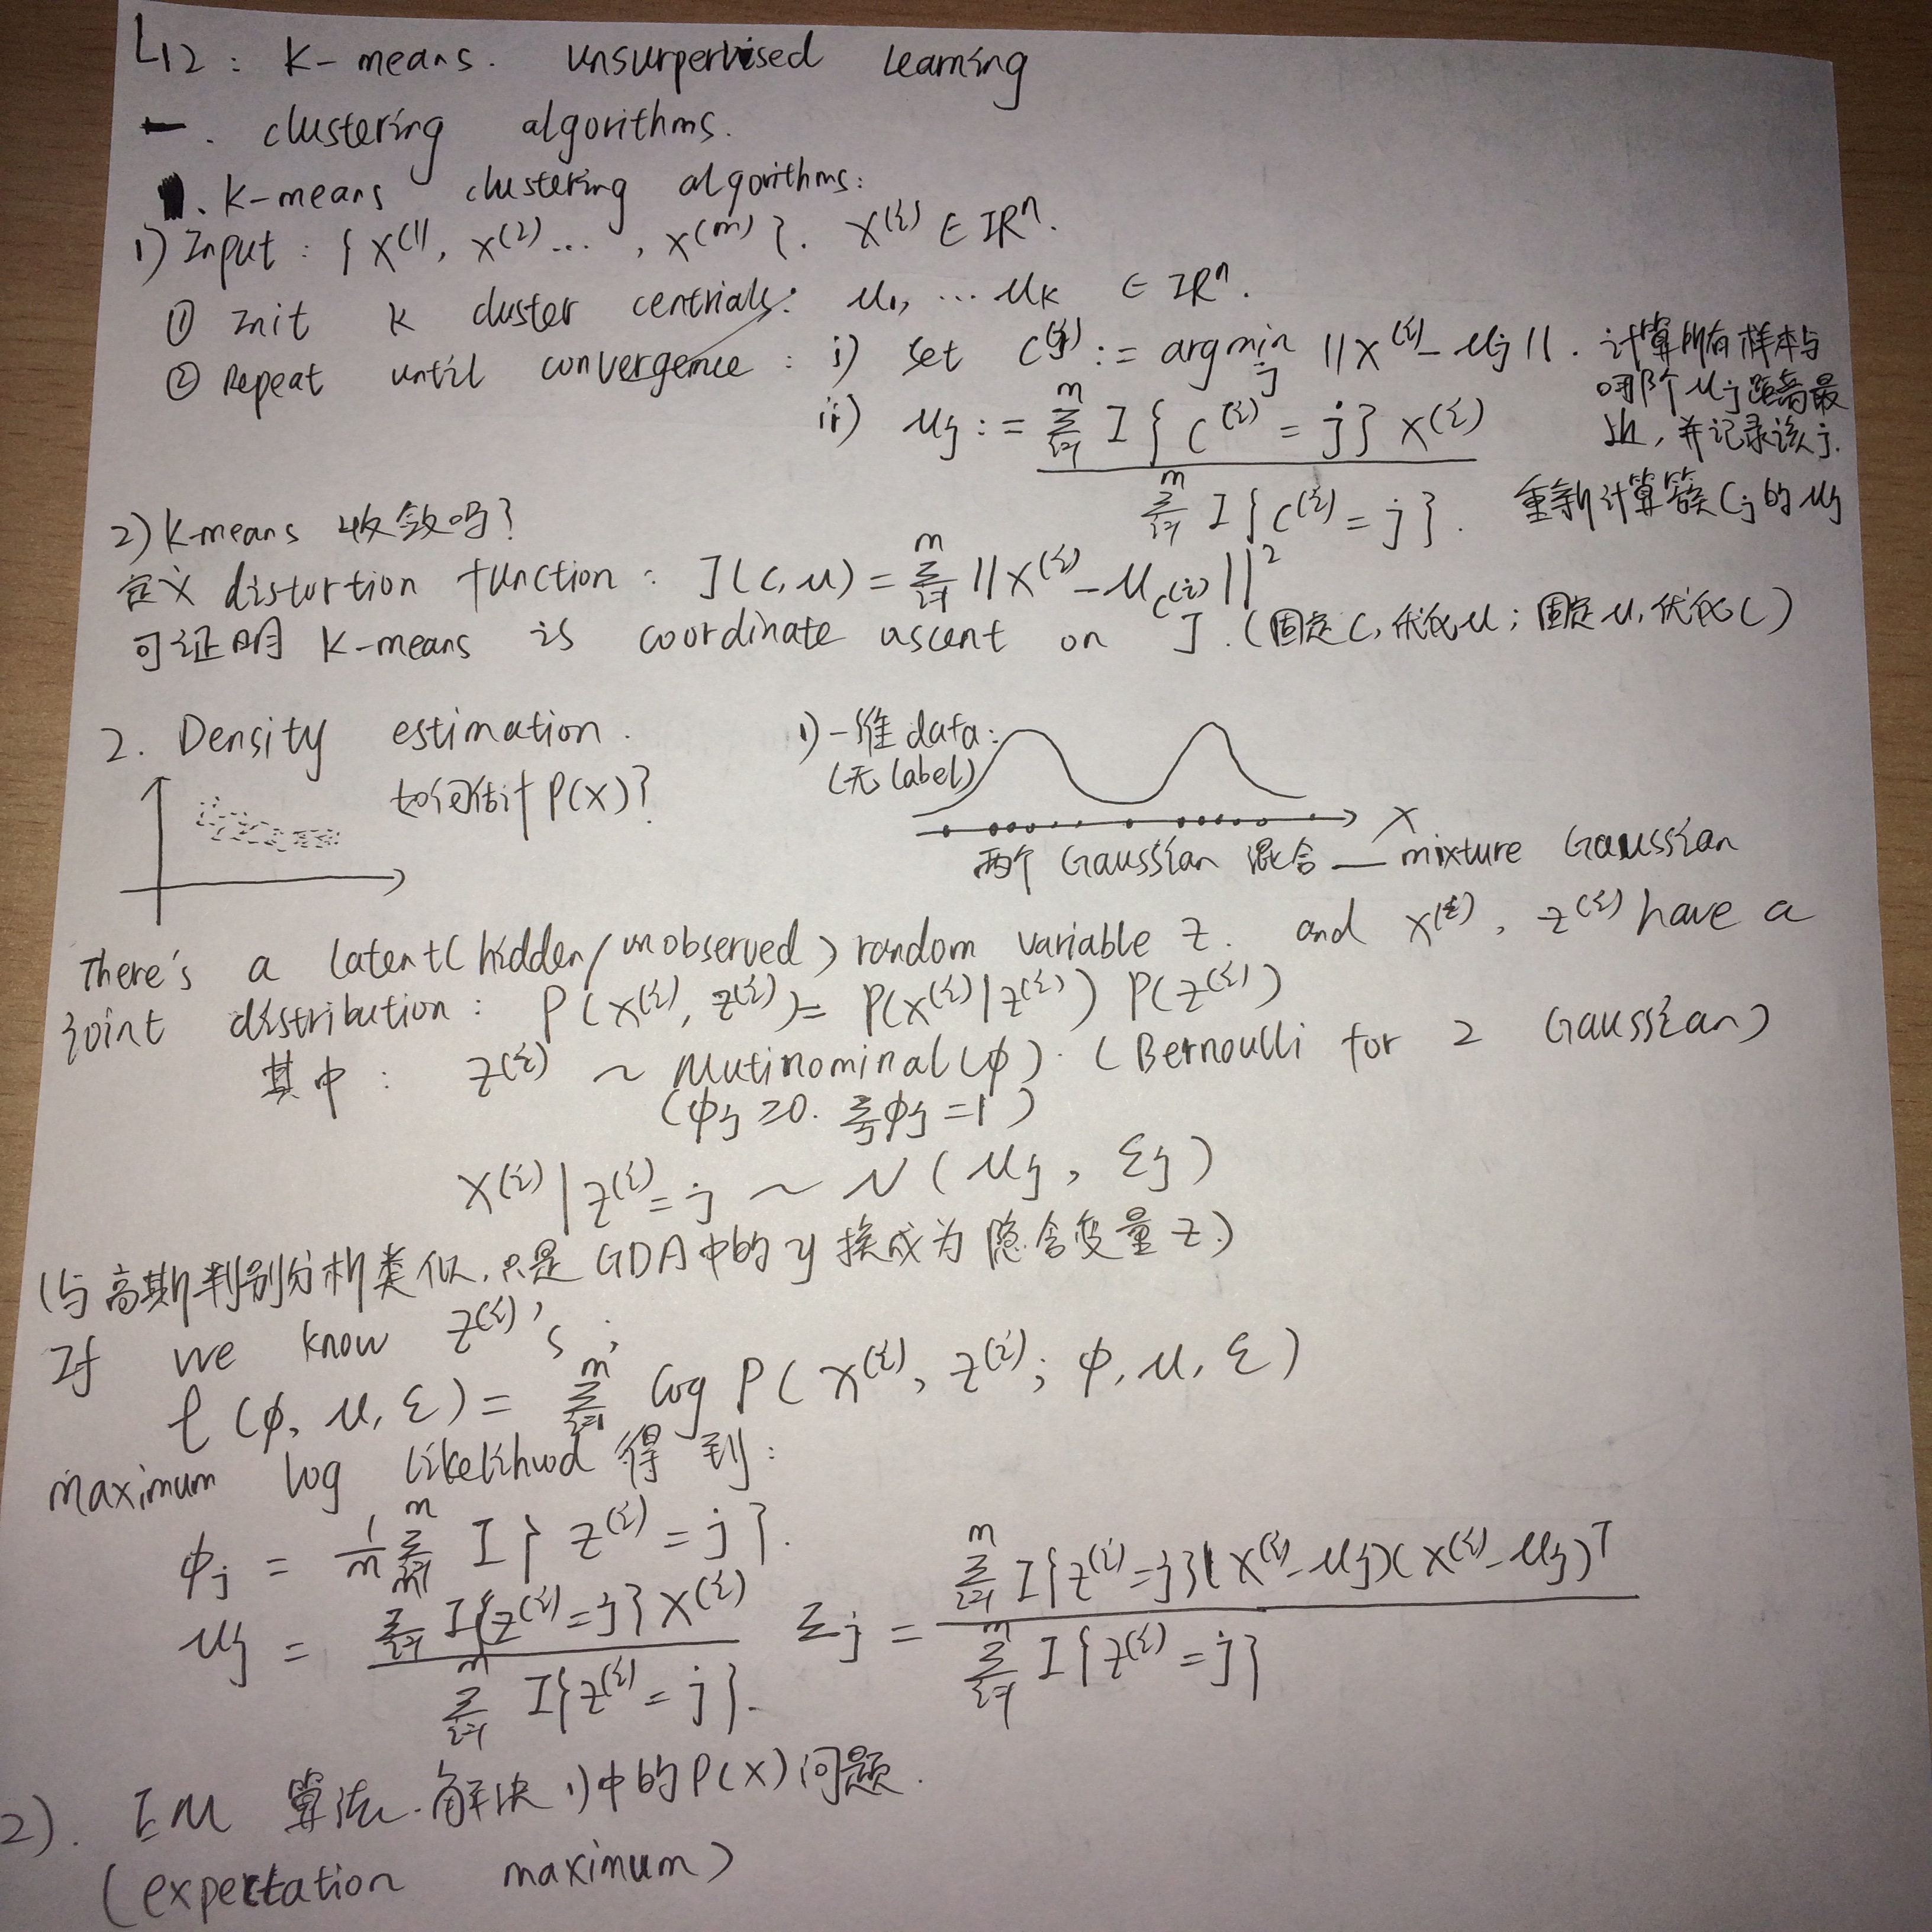 L12: K-means. unsurpervised learning
一. clustering algorithms.
1. K-means clustering algorithms:
1) Input: {x^(1), x^(2)..., x^(m)}. x^(i) ∈ IR^n.
① Init k cluster centrials: μ1, ... μk ∈ IR^n.
② Repeat until convergence: i) set c^(j) := argmin_j ||x^(i) - μj||. 计算所有样本与
哪个μj距离最
小, 并记录该j.
ii) μj := Σ_{i=1}^m I{c^(i) = j} x^(i) / Σ_{i=1}^m I{c^(i) = j}. 重新计算簇Cj的μj
2) K-means 收敛吗?
定义 distortion function: J(c, μ) = Σ_{i=1}^m ||x^(i) - μ_{c^(i)}||^2
可证明 K-means is coordinate ascent on J. (固定C, 优化μ; 固定μ, 优化C)
2. Density estimation.
如何估计P(x)?
1) 一维data:
(无label)
X
两个 Gaussian 混合 — mixture Gaussian
There's a latent(hidden/unobserved) random variable z. and x^(i), z^(i) have a
joint distribution: P(x^(i), z^(i)) = P(x^(i)|z^(i)) P(z^(i))
其中: z^(i) ~ Mutinominal(φ). (Bernoulli for 2 Gaussian)
(φj ≥0. Σ_j φj =1)
x^(i)|z^(i)=j ~ N(μj, Σj)
(与高斯判别分析类似, 只是GDA中的y换成为隐含变量z.)
If we know z^(i)'s;
ℓ(φ, μ, Σ) = Σ_{i=1}^m log P(x^(i), z^(i); φ, μ, Σ)
maximum log likelihood 得到:
φj = 1/m Σ_{i=1}^m I{z^(i) = j}.
μj = Σ_{i=1} I{z^(i)=j} x^(i) / Σ_{i=1}^m I{z^(i) = j}. Σj = Σ_{i=1}^m I{z^(i)=j}(x^(i)-μj)(x^(i)-μj)^T / Σ_{i=1}^m I{z^(i) = j}
2). EM 算法. 解决1)中的P(x)问题.
(expectation maximum)